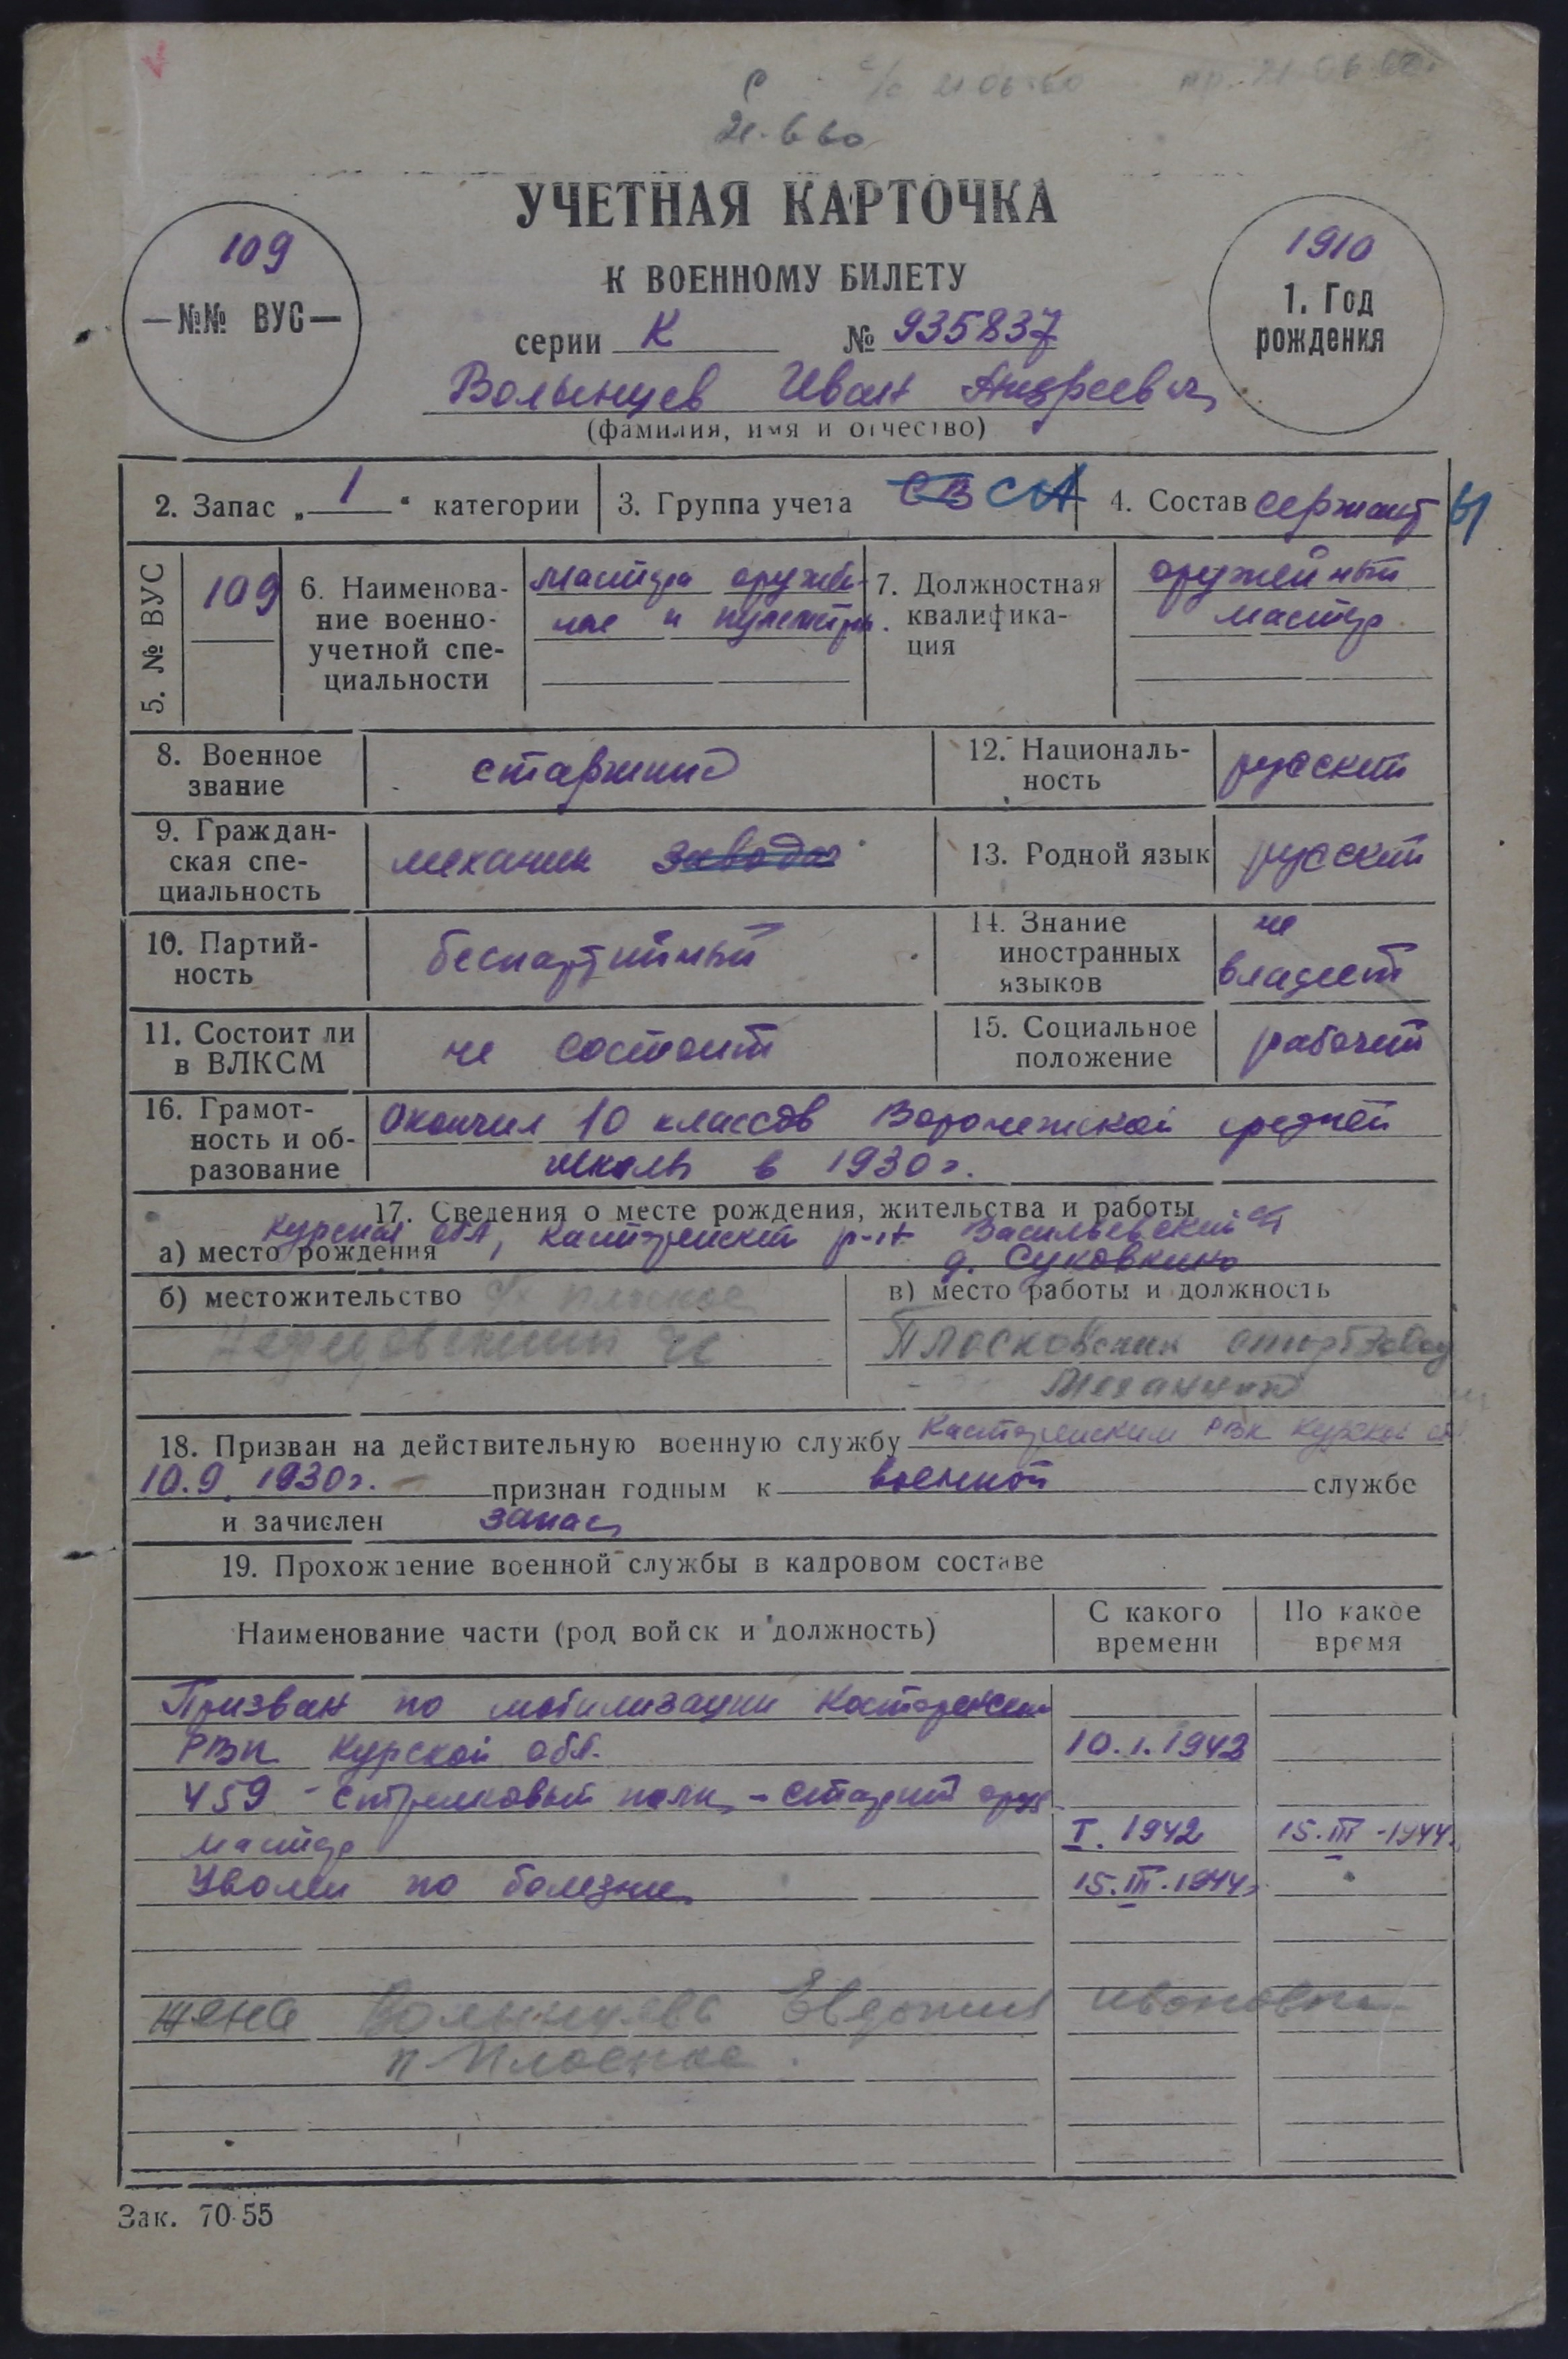 21.06.60
21.06.60
21.6 60
УЧЕТНАЯ КАРТОЧКА
К ВОЕННОМУ БИЛЕТУ
109
—№№ ВУС—
1910
1. Год
рождения
серии К № 935837
Волынцев Иван Андреевич
(фамилия, имя и отчество)
2. Запас „ 1 “ категории 3. Группа учета СВ СА 4. Состав сержанты
5. № ВУС 109
6. Наименова-
ние военно-
учетной спе-
циальности
мастера оружей-
ные и пулеметн.
7. Должностная
квалифика-
ция
оружейный
мастер
8. Военное
звание
старшина
12. Националь-
ность
русский
9. Граждан-
ская спе-
циальность
механик завода
13. Родной язык русский
10. Партий-
ность
беспартийный
14. Знание
иностранных
языков
не
владеет
11. Состоит ли
в ВЛКСМ
не состоит
15. Социальное
положение
рабочий
16. Грамот-
ность и об-
разование
Окончил 10 классов Воронежской средней
школы в 1930 г.
17. Сведения о месте рождения, жительства и работы
Курская обл, Касторенский р-н Васильевский с/с
а) место рождения д. Суковкино
б) местожительство Плоское
в) место работы и должность
Плосковский спиртзавод
механик
18. Призван на действительную военную службу Касторенским РВК Курской обл.
10.9. 1930 г. признан годным к военной службе
и зачислен запас
19. Прохождение военной службы в кадровом составе
Наименование части (род войск и должность)
С какого
времени
По какое
время
Призван по мобилизации Касторенским
РВК Курской обл. 10.1.1942
459 - стрелковый полк - старший оруж.
мастер I. 1942 15.III-1944
Уволен по болезни 15.III.1944г
жена Волынцева Евдокия Ивановна
п. Плоское
Зак. 70-55